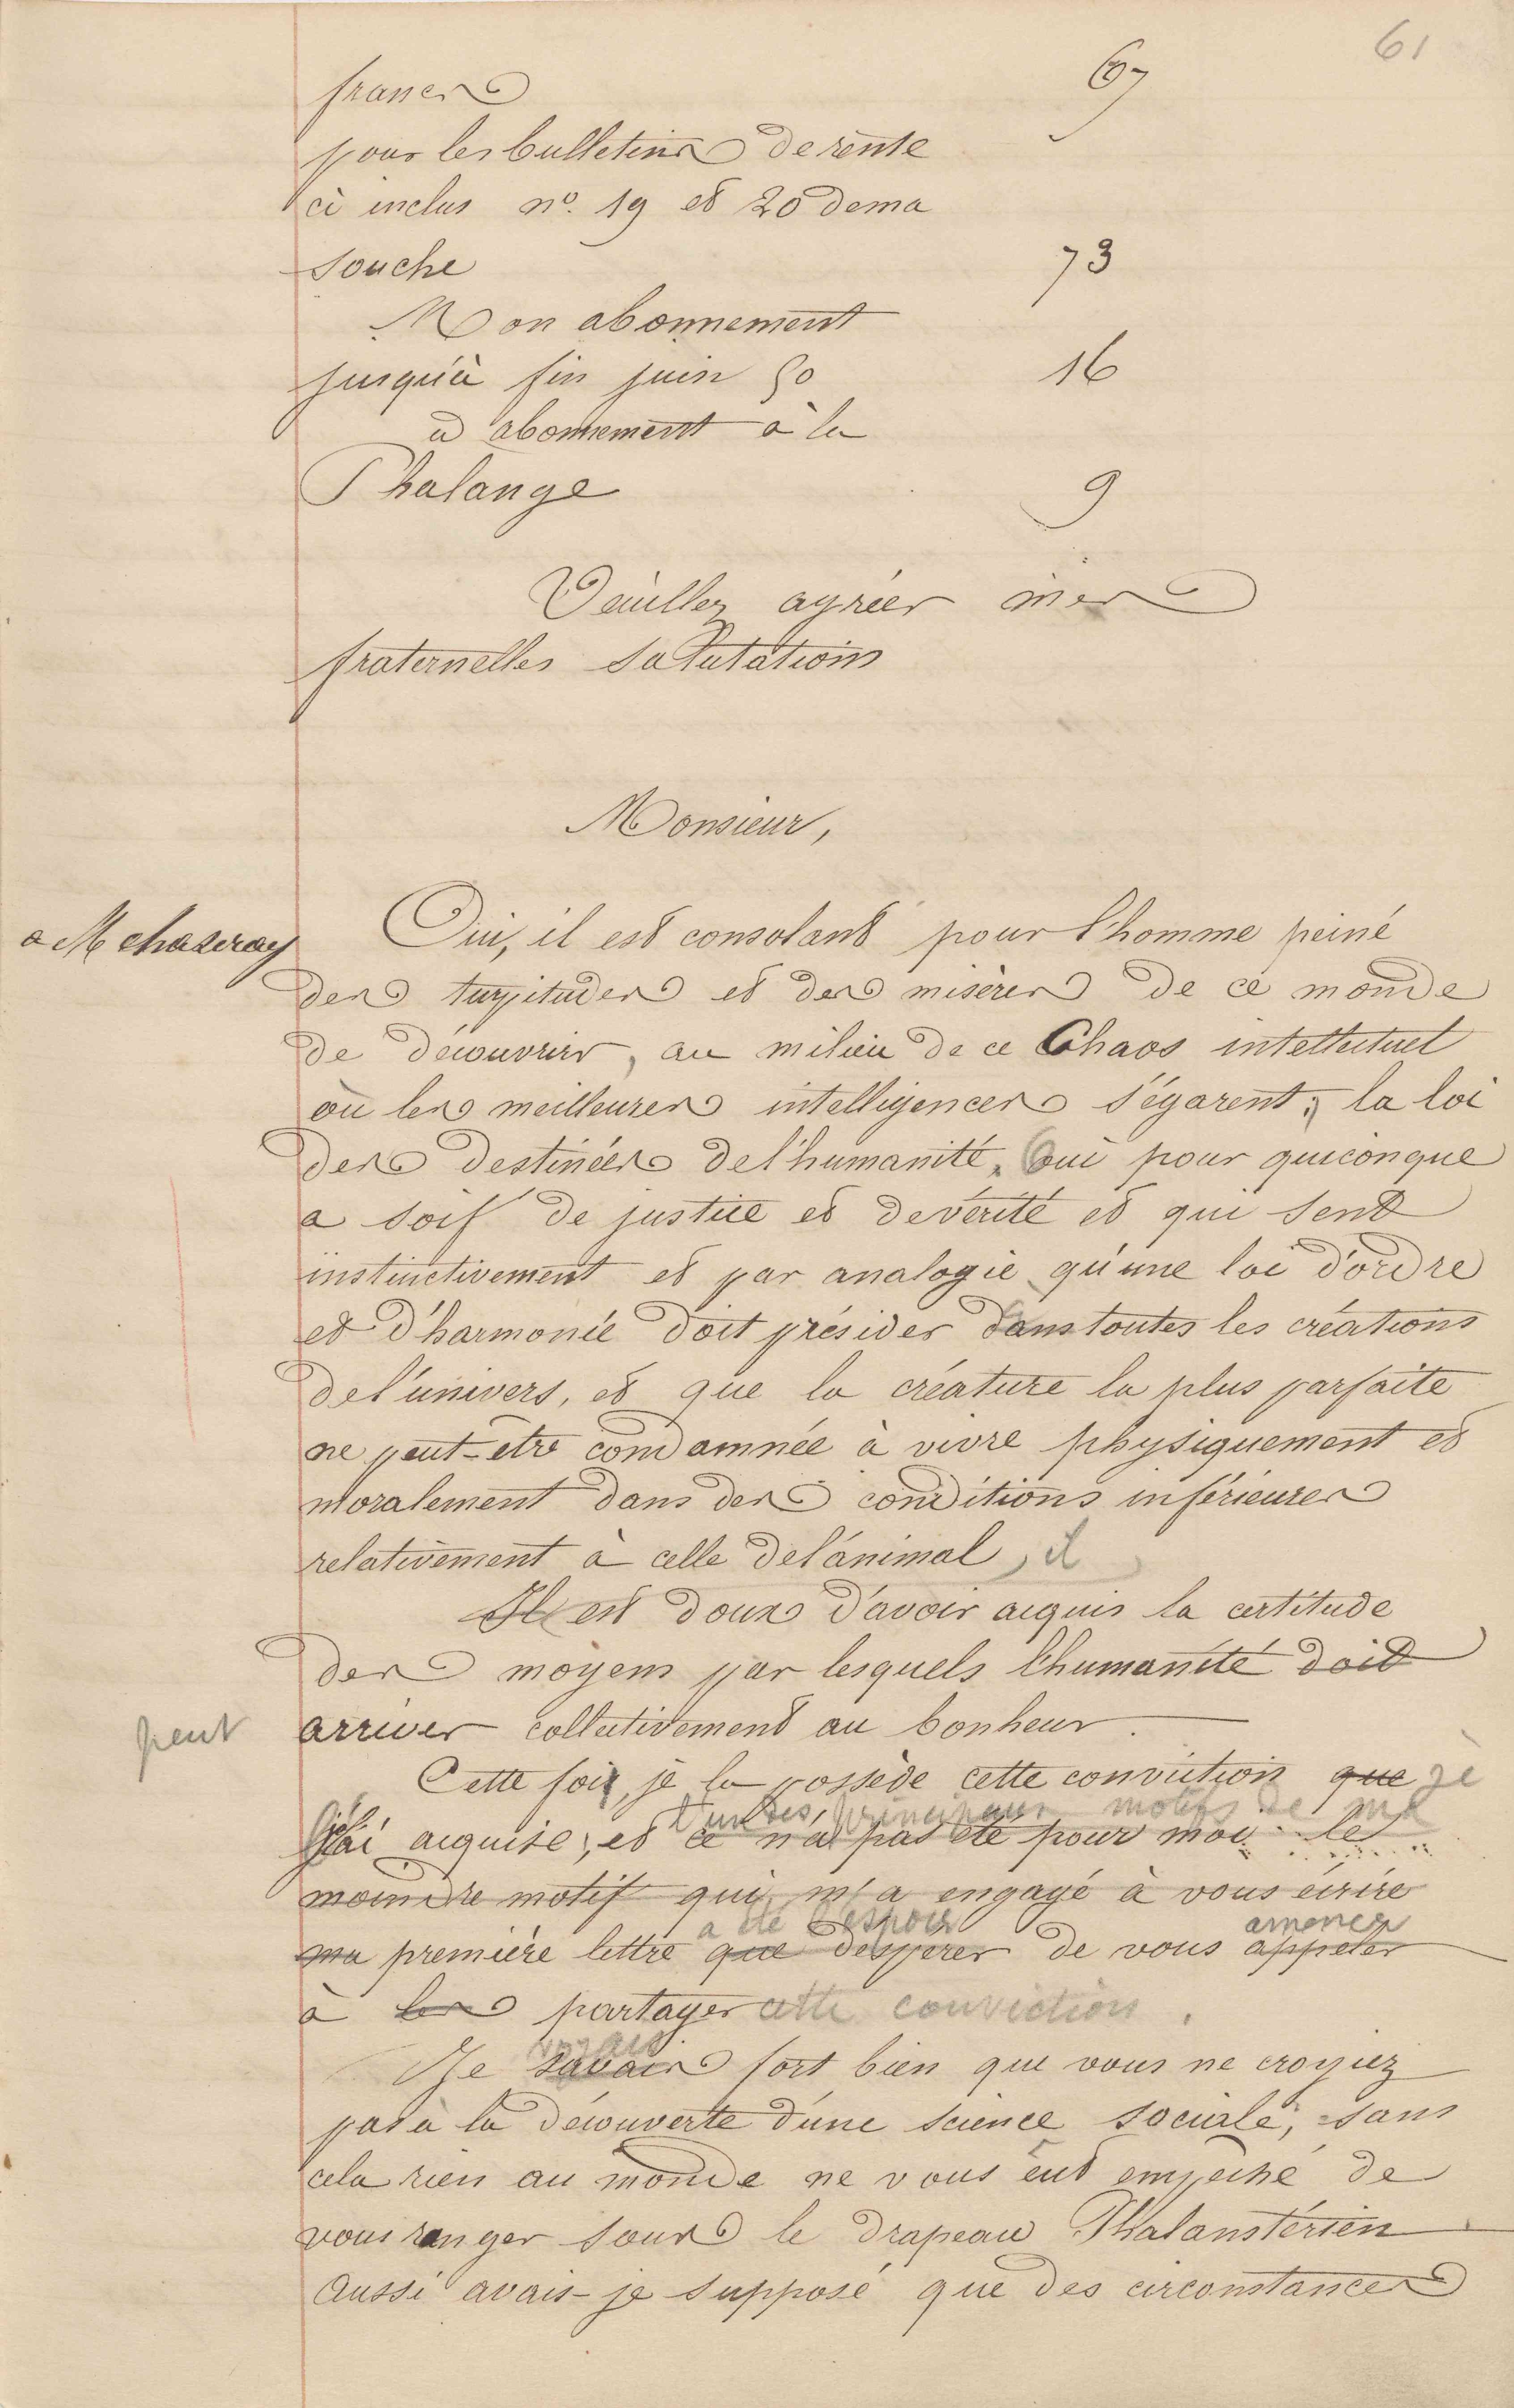 61
francs 67
pour les bulletins de rente
ci inclus nº. 19 et 20 de ma
souche 73
Mon abonnement
jusqu'à fin juin 50 16
abonnement à la
Phalange 9
Veuillez agréer mes
fraternelles salutations
Monsieur,
a M chazeray
Oui, il est consolant pour l'homme peiné
des turpitudes et des misères de ce monde
de découvrir, au milieu de ce Chaos intellectuel
où les meilleures intelligences s'égarent, la loi
des destinées de l'humanité, oui pour quiconque
a soif de justice et de vérité et qui sent
instinctivement et par analogie qu'une loi d'ordre
et d'harmonie doit présider dans toutes les créations
de l'univers, et que la créature la plus parfaite
ne peut-être condamnée à vivre physiquement et
moralement dans des conditions inférieures
relativement à celle de l'animal, il
Il est doux d'avoir acquis la certitude
des moyens par lesquels l'humanité doit
peut
arriver collectivement au bonheur.
Cette foi, je la possède cette conviction que je
l'un des principaux motifs de ma
j'ai acquise; et ce n'a pas été pour moi le
moindre motif qui m'a engagé à vous écrire
a été l'espoir amener
ma première lettre que d'espérer de vous appeler
à les partager cette conviction.
voyais
Je savais fort bien que vous ne croyiez
pas à la découverte d'une science sociale, sans
cela rien au monde ne vous eut empêché de
vous ranger sous le drapeau Phalanstérien
Aussi avais-je supposé que des circonstances